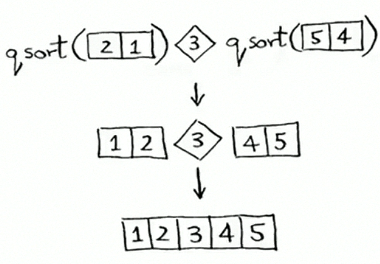 qsort( 2 1 ) 3 qsort( 5 4 )
1 2 3 4 5
1 2 3 4 5